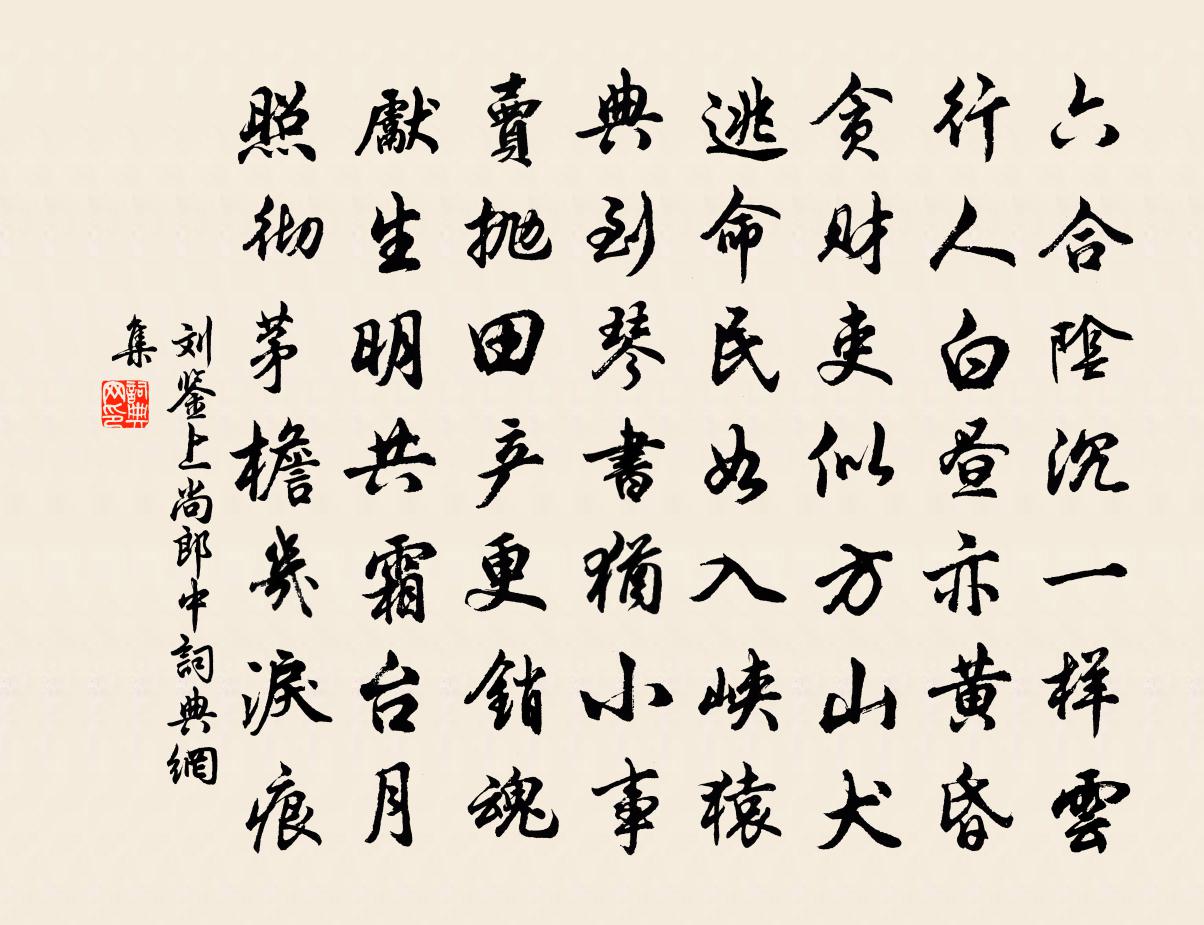 六合陰沉一样雲
行人白昼亦黄昏
贪财吏似方山犬
逃命民如入峡猿
典到琴書猶小事
賣抛田产更銷魂
獻生明共霜台月
照彻茅檐幾淚痕
刘鉴上尚郎中詞典網
集
詞典
网印